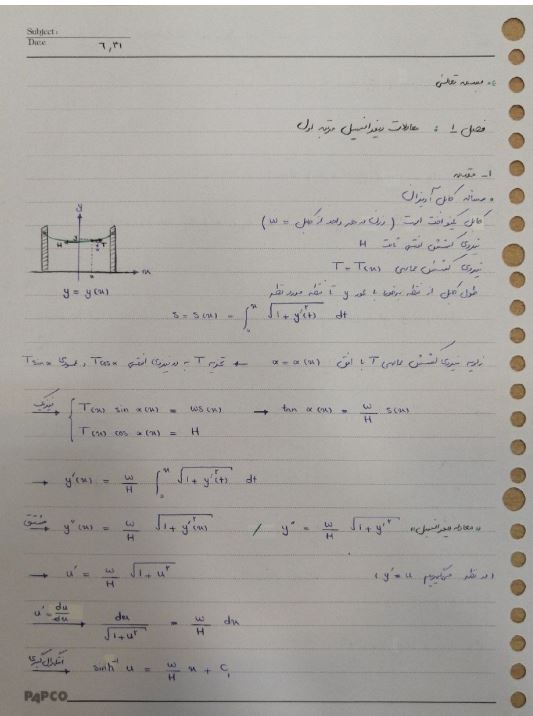 Subject:
Date ٦,٣١
بسمه تعالی
فصل ۱ : معادلات دیفرانسیل مرتبه اول
۱- مقدمه
مساله کابل آویزان
کابل یکنواخت است ( وزن در هر واحد از کابل = w )
نیروی کشش افقی ثابت H
نیروی کشش مماسی T = T(x)
طول کابل از نقطه برخورد با محور y تا نقطه مورد نظر
y
H T
x
x
y = y(x)
s = s(x) = ∫₀ˣ √(1 + y'²(t)) dt
زاویه نیروی کشش مماسی T با افق α = α(x) ← تجزیه T به دو نیروی افقی T cos α و عمودی T sin α
فیزیک → { T(x) sin α(x) = ws(x) → tan α(x) = w/H s(x)
T(x) cos α(x) = H
→ y'(x) = w/H ∫₀ˣ √(1 + y'²(t)) dt
مشتق → y''(x) = w/H √(1 + y'²(x)) / y'' = w/H √(1 + y'²) «معادله دیفرانسیل»
→ u' = w/H √(1 + u²) (در نظر میگیریم y' = u)
u' = du/dx → du/√(1+u²) = w/H dx
انتگرال گیری → sinh⁻¹ u = w/H x + C₁
PAPCO